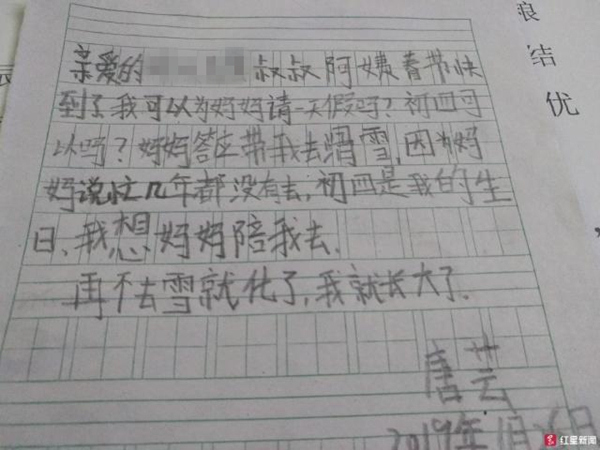 亲爱的 叔叔阿姨春节快
到了我可以为妈妈请一天假吗?初四可
以吗?妈妈答应带我去滑雪,因为妈
妈说忙几年都没有去,初四是我的生
日,我想妈妈陪我去.
再不去雪就化了,我就长大了.
唐芸
2019年1月26日
红星新闻
浪
结
优